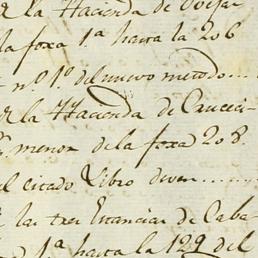 la Hacienda de Ovejas
la foxa 1ª hasta la 206
nº 1º del nuevo metodo....
la Hazienda de Cauceci
menor de la foxa 208.
el citado Libro dicen........
las tres Estancias de Caba
1ª hasta la 129 del